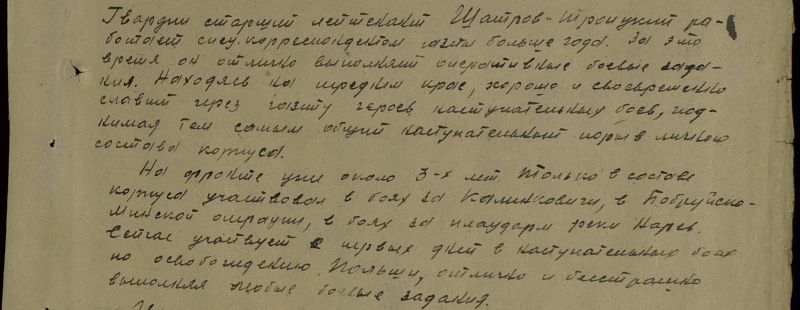 Гвардии старший лейтенант Шатров-Троицкий ра-
ботает спец. корреспондентом газеты больше года. За это
время он отлично выполняет оперативные боевые зада-
ния. Находясь на переднем крае, хорошо и своевременно
славит через газету героев наступательных боев, под-
нимая тем самым общий наступательный порыв личного
состава корпуса.
На фронте уже около 3-х лет. Только в составе
корпуса участвовал в боях за Калинковичи, в Бобруйско-
Минской операции, в боях за плацдарм реки Нарев.
Сейчас участвует с первых дней в наступательных боях
по освобождению Польши, отлично и бесстрашно
выполняя любые боевые задания.